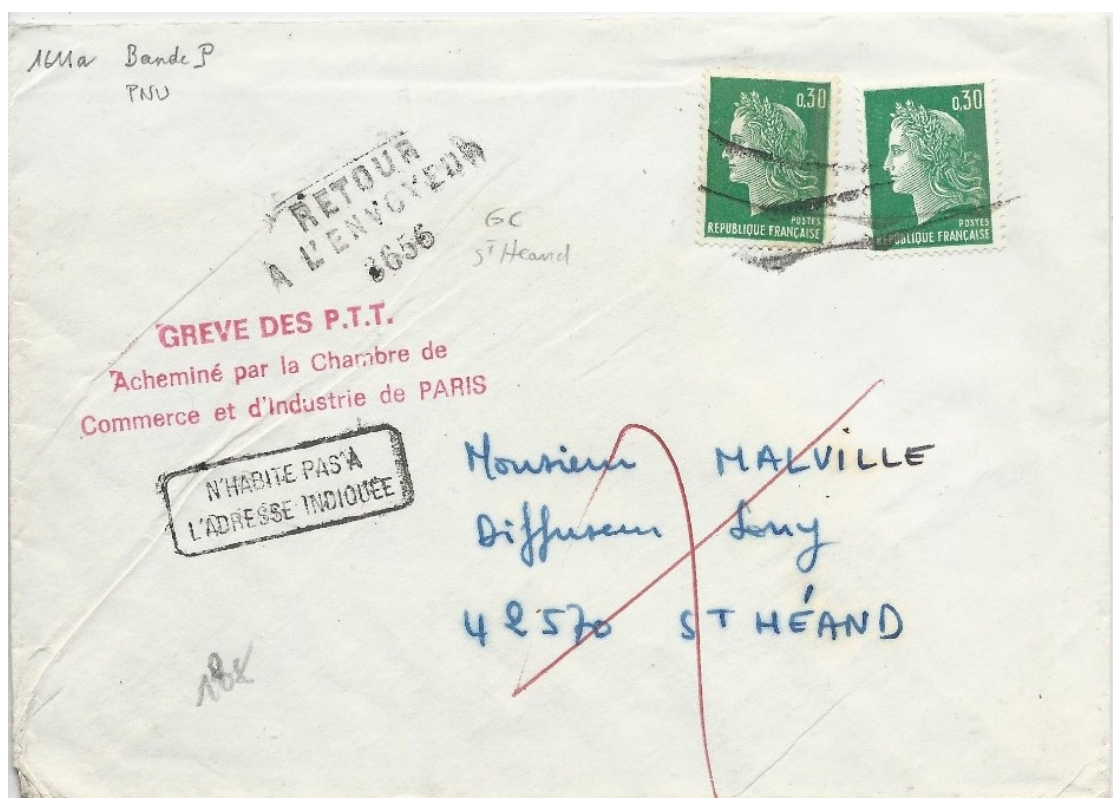 1611a Bande P
PNU
0,30
POSTES
REPUBLIQUE FRANÇAISE
0,30
POSTES
REPUBLIQUE FRANÇAISE
RETOUR
A L'ENVOYEUR
3656
GC
ST Héand
GREVE DES P.T.T.
Acheminé par la Chambre de
Commerce et d'Industrie de PARIS
N'HABITE PAS A
L'ADRESSE INDIQUÉE
Monsieur MALVILLE
Diffuseur Sony
42570 ST HÉAND